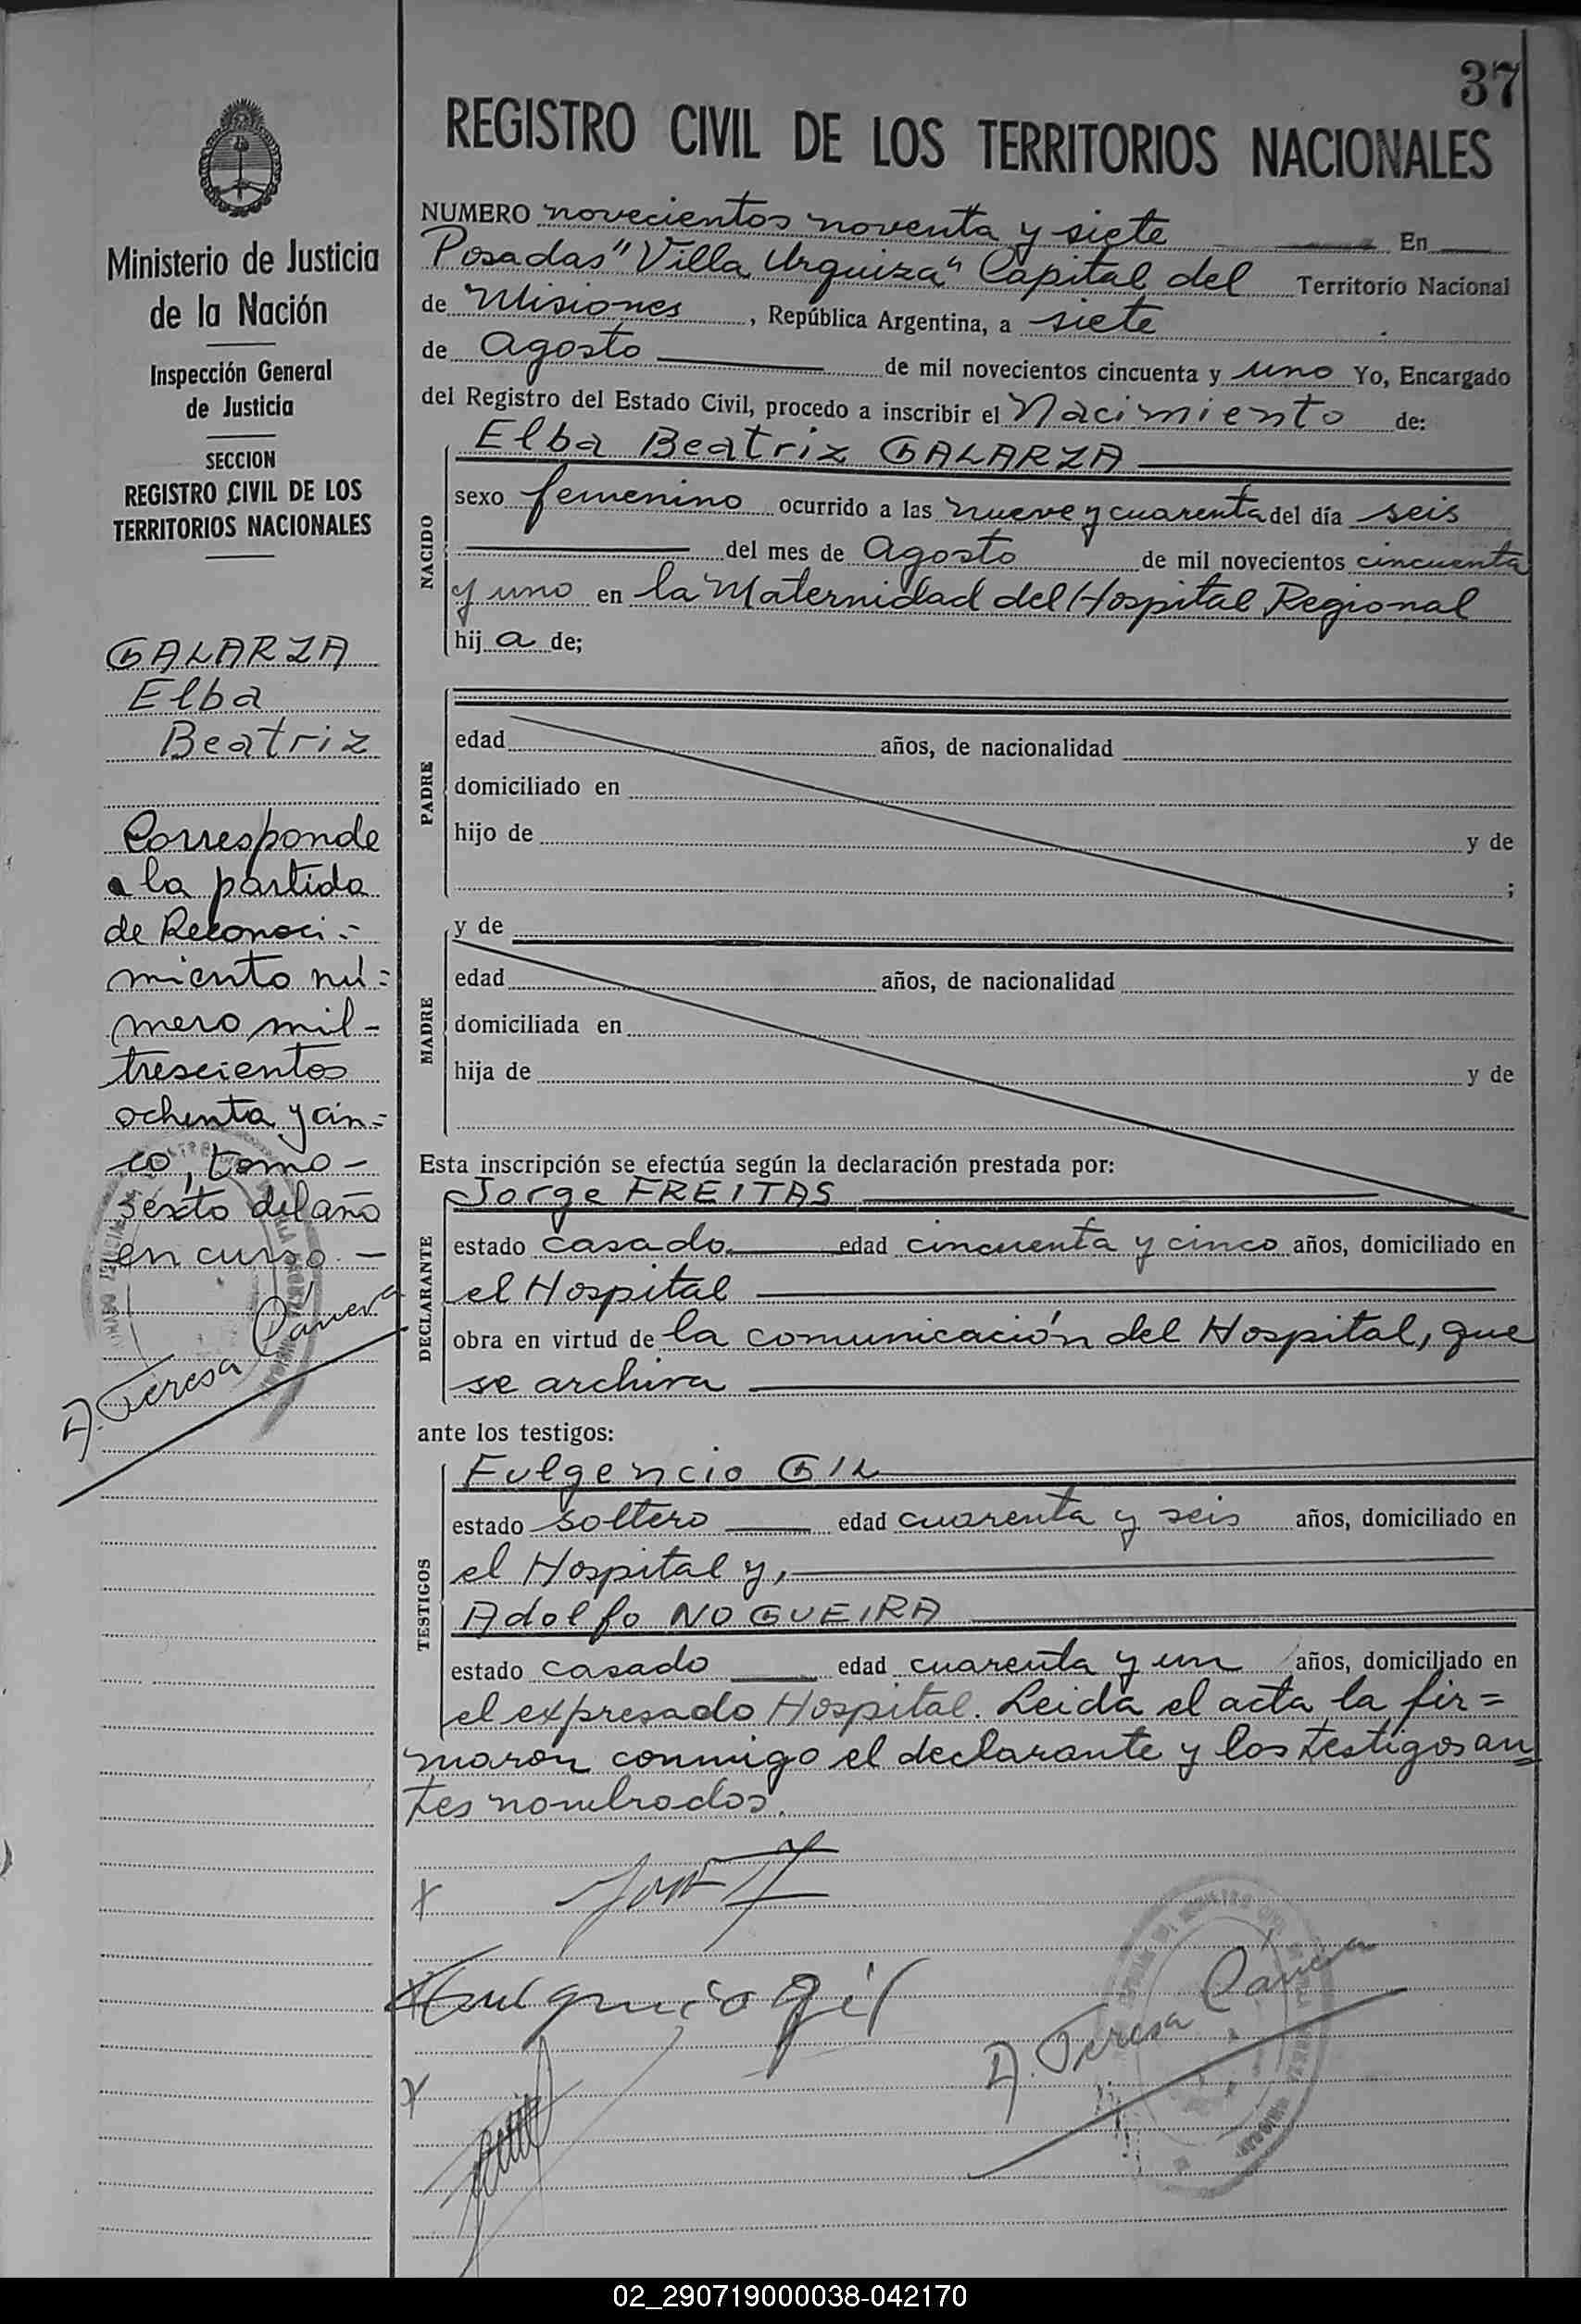 37
REGISTRO CIVIL DE LOS TERRITORIOS NACIONALES
Ministerio de Justicia
de la Nación
Inspección General
de Justicia
SECCION
REGISTRO CIVIL DE LOS
TERRITORIOS NACIONALES
GALARZA
Elba
Beatriz
Corresponde
a la partida
de Reconoci-
miento nú=
mero mil-
trescientos
ochenta y cin=
co, tomo-
sexto del año
en curso.-
A. Teresa
NUMERO novecientos noventa y siete En
Posadas "Villa Urquiza" Capital del Territorio Nacional
de Misiones, República Argentina, a siete
de Agosto de mil novecientos cincuenta y uno Yo, Encargado
del Registro del Estado Civil, procedo a inscribir el Nacimiento de:
NACIDO
Elba Beatriz GALARZA
sexo femenino ocurrido a las nueve y cuarenta del día seis
del mes de Agosto de mil novecientos cincuenta
y uno en la Maternidad del Hospital Regional
hija de;
PADRE
edad años, de nacionalidad
domiciliado en
hijo de y de
;
MADRE
y de
edad años, de nacionalidad
domiciliada en
hija de y de
Esta inscripción se efectúa según la declaración prestada por:
DECLARANTE
Jorge FREITAS
estado casado edad cincuenta y cinco años, domiciliado en
el Hospital
obra en virtud de la comunicación del Hospital, que
se archiva
ante los testigos:
TESTIGOS
Fulgencio GIL
estado soltero edad cuarenta y seis años, domiciliado en
el Hospital y,
Adolfo NOGUEIRA
estado casado edad cuarenta y un años, domiciliado en
el expresado Hospital. Leida el acta, la fir=
maron conmigo el declarante y los testigos an=
tes nombrados.
Fulgencio Gil
A. Teresa
02_290719000038-042170